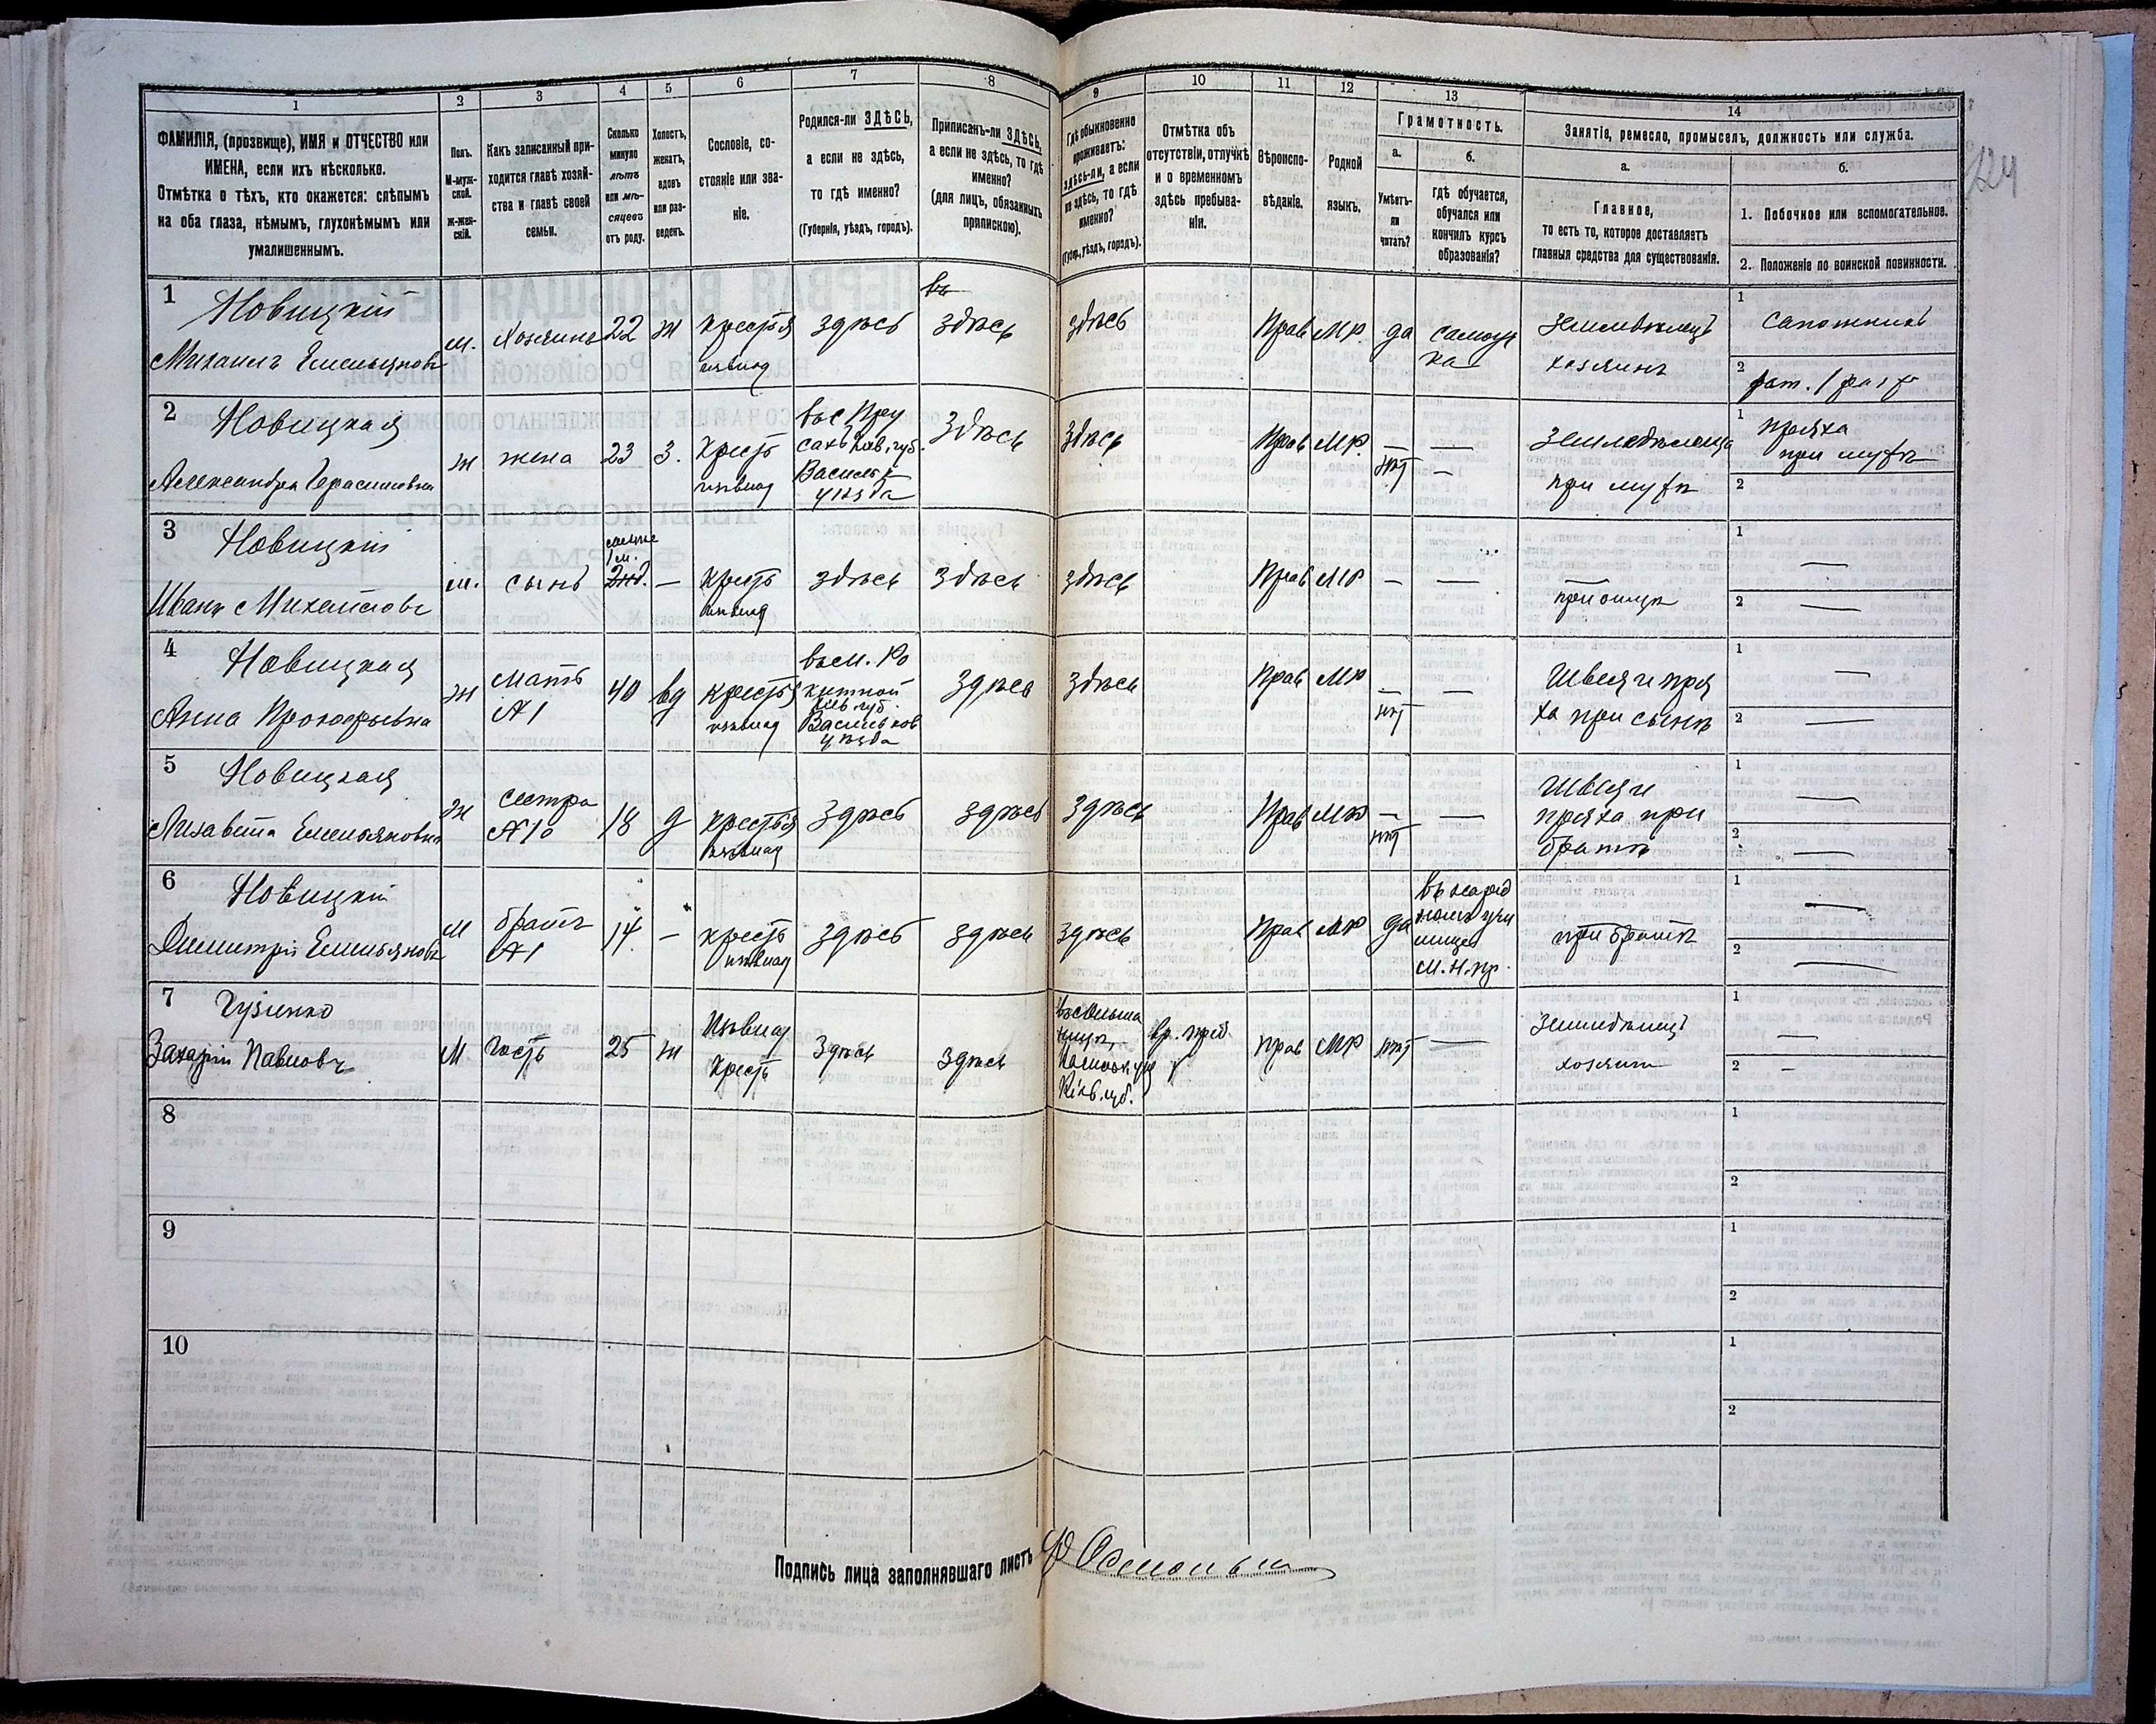 1 2 3 4 5 6 7 8 9 10 11 12 13 14
ФАМИЛІЯ, (прозвище), ИМЯ и ОТЧЕСТВО или
ИМЕНА, если ихъ нѣсколько.
Отмѣтка о тѣхъ, кто окажется: слѣпымъ
на оба глаза, нѣмымъ, глухонѣмымъ или
умалишеннымъ.
Полъ.
М-муж-
ской.
ж-жен-
скій.
Какъ записанный при-
ходится главѣ хозяй-
ства и главѣ своей
семьи.
Сколько
минуло
лѣтъ
или мѣ-
сяцевъ
отъ роду.
Холостъ,
женатъ,
вдовъ
или раз-
веденъ.
Сословіе, со-
стояніе или зва-
ніе.
Родился-ли ЗДѢСЬ,
а если не здѣсь,
то гдѣ именно?
(Губернія, уѣздъ, городъ).
Приписанъ-ли ЗДѢСЬ,
а если не здѣсь, то гдѣ
именно?
(для лицъ, обязанныхъ
припискою).
Гдѣ обыкновенно
проживаетъ:
здѣсь-ли, а если
не здѣсь, то гдѣ
именно?
(Губер., уѣздъ, городъ).
Отмѣтка объ
отсутствіи, отлучкѣ
и о временномъ
здѣсь пребыва-
ніи.
Вѣроиспо-
вѣданіе.
Родной
языкъ.
Грамотность.
а.
Умѣетъ-
ли
читать?
б.
гдѣ обучается,
обучался или
кончилъ курсъ
образованія?
Занятіе, ремесло, промыселъ, должность или служба.
а.
Главное,
то есть то, которое доставляетъ
главныя средства для существованія.
б.
1. Побочное или вспомогательное.
2. Положеніе по воинской повинности.
124
1 Новицкій
Михаилъ Емельяновъ
м.
Хозяинъ
22
ж
крестья
изъ влад
здѣсь
въ
здѣсь
здѣсь
Прав
МР.
да
самоуч
ка
Земледѣлецъ
хозяинъ
1 сапожникъ
2 рат. 1 разр
2 Новицкая
Александра Герасимовна
ж
жена
23
з.
Кресть
изъ влад
въ с
сахъ Кіев. губ.
Васильк
уѣзда
Здѣсь
Здѣсь
Прав
МР.
—
нѣт
—
—
Земледѣлица
при мужѣ
1 пряха
при мужѣ
2
3 Новицкій
Иванъ Михайловъ
м.
сынъ
менѣе
1 м.
—
Кресть
изъ влад
здѣсь
здѣсь
здѣсь
Прав
МР
—
—
—
при отцѣ
1 —
2 —
4 Новицкая
Анна Прокофьевна
ж
мать
№ 1
40
вд
крестья
изъ влад
въ м. Ро
китной
Кіев. губ.
Васильков
уѣзда
здѣсь
здѣсь
Прав
МР
—
нѣт
—
Швея и пря
ха при сынѣ
1 —
2 —
5 Новицкая
Лизавета Емельяновна
ж
сестра
№ 1о
18
д
крестья
изъ влад
здѣсь
здѣсь
здѣсь
Прав
МР
—
нѣт
—
Швея и
пряха при
братѣ
1 —
2 —
6 Новицкій
Димитрій Емельяновъ
м
братъ
№ 1
14
—
кресть
изъ влад
здѣсь
здѣсь
здѣсь
Прав
МР
да
въ народ
номъ учи
лищѣ
М. Н. пр.
при братѣ
1 —
2 —
7
Захарій Павловъ
М
гость
25
ж
Изъ влад
Кресть
Здѣсь
здѣсь
Кіев. губ.
вр. преб.
прав
МР
нѣт
—
Земледѣлецъ
хозяинъ
1 —
2 —
8
1
2
9
1
2
10
1
2
Подпись лица заполнявшаго листъ